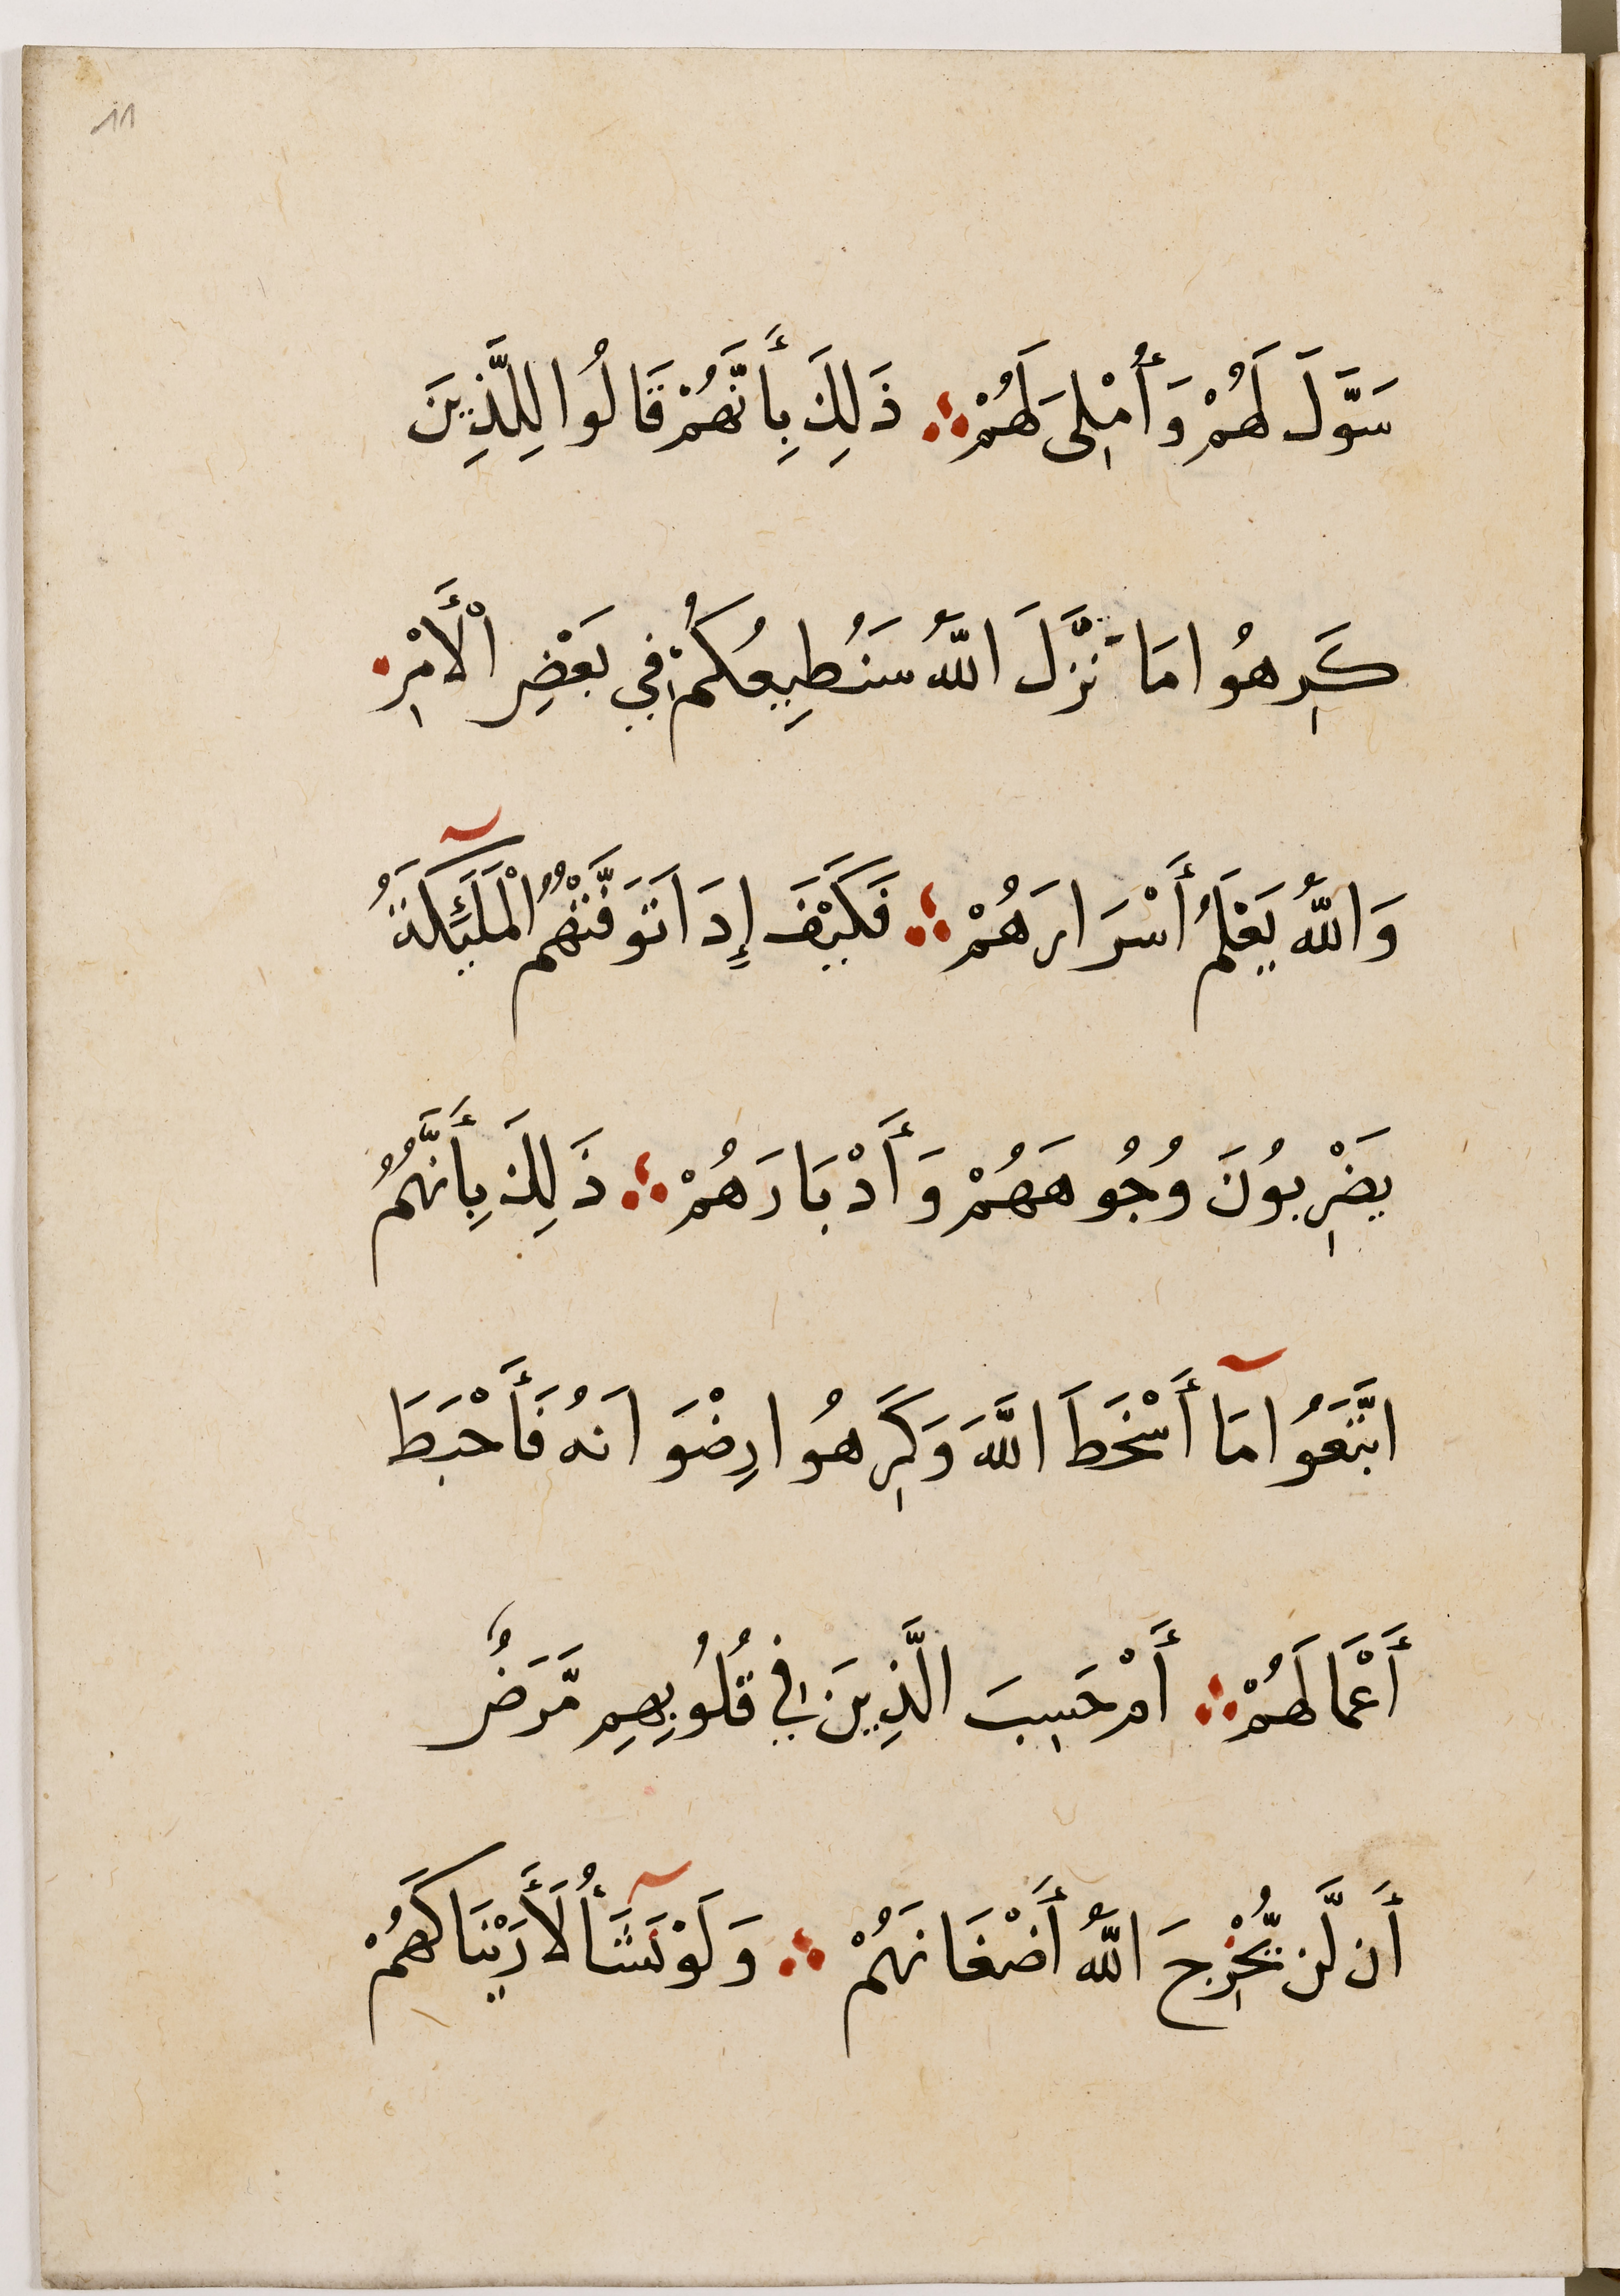 11
سَوَّلَ لَهُمْ وَأُمْلِىَ لَهُمْ ؞ ذَلِكَ بِأَنَّهُمْ قَالُوا لِلَّذِينَ
كَرِهُوا مَا نَزَّلَ اللَّهُ سَنُطِيعُكُمْ فِي بَعْضِ الْأَمْرِ
وَاللَّهُ يَعْلَمُ أَسْرَارَهُمْ ؞ فَكَيْفَ إِدَا تَوَفَّتْهُمُ الْمَلَئِكَةُ
يَضْرِبُونَ وُجُوهَهُمْ وَأَدْبَارَهُمْ ؞ ذَلِكَ بِأَنَّهُمُ
اتَّبَعُوا مَآ أَسْخَطَ اللَّهَ وَكَرِهُوا رِضْوَانَهُ فَأَحْبَطَ
أَعْمَالَهُمْ ؞ أَمْ حَسِبَ الَّذِينَ فِي قُلُوبِهِمِ مَّرَضٌ
أَن لَّن يُّخْرِجَ اللَّهُ أَضْغَانَهُمْ ؞ وَلَوْ نَشَآأُ لَأَرَيْنَاكَهُمْ